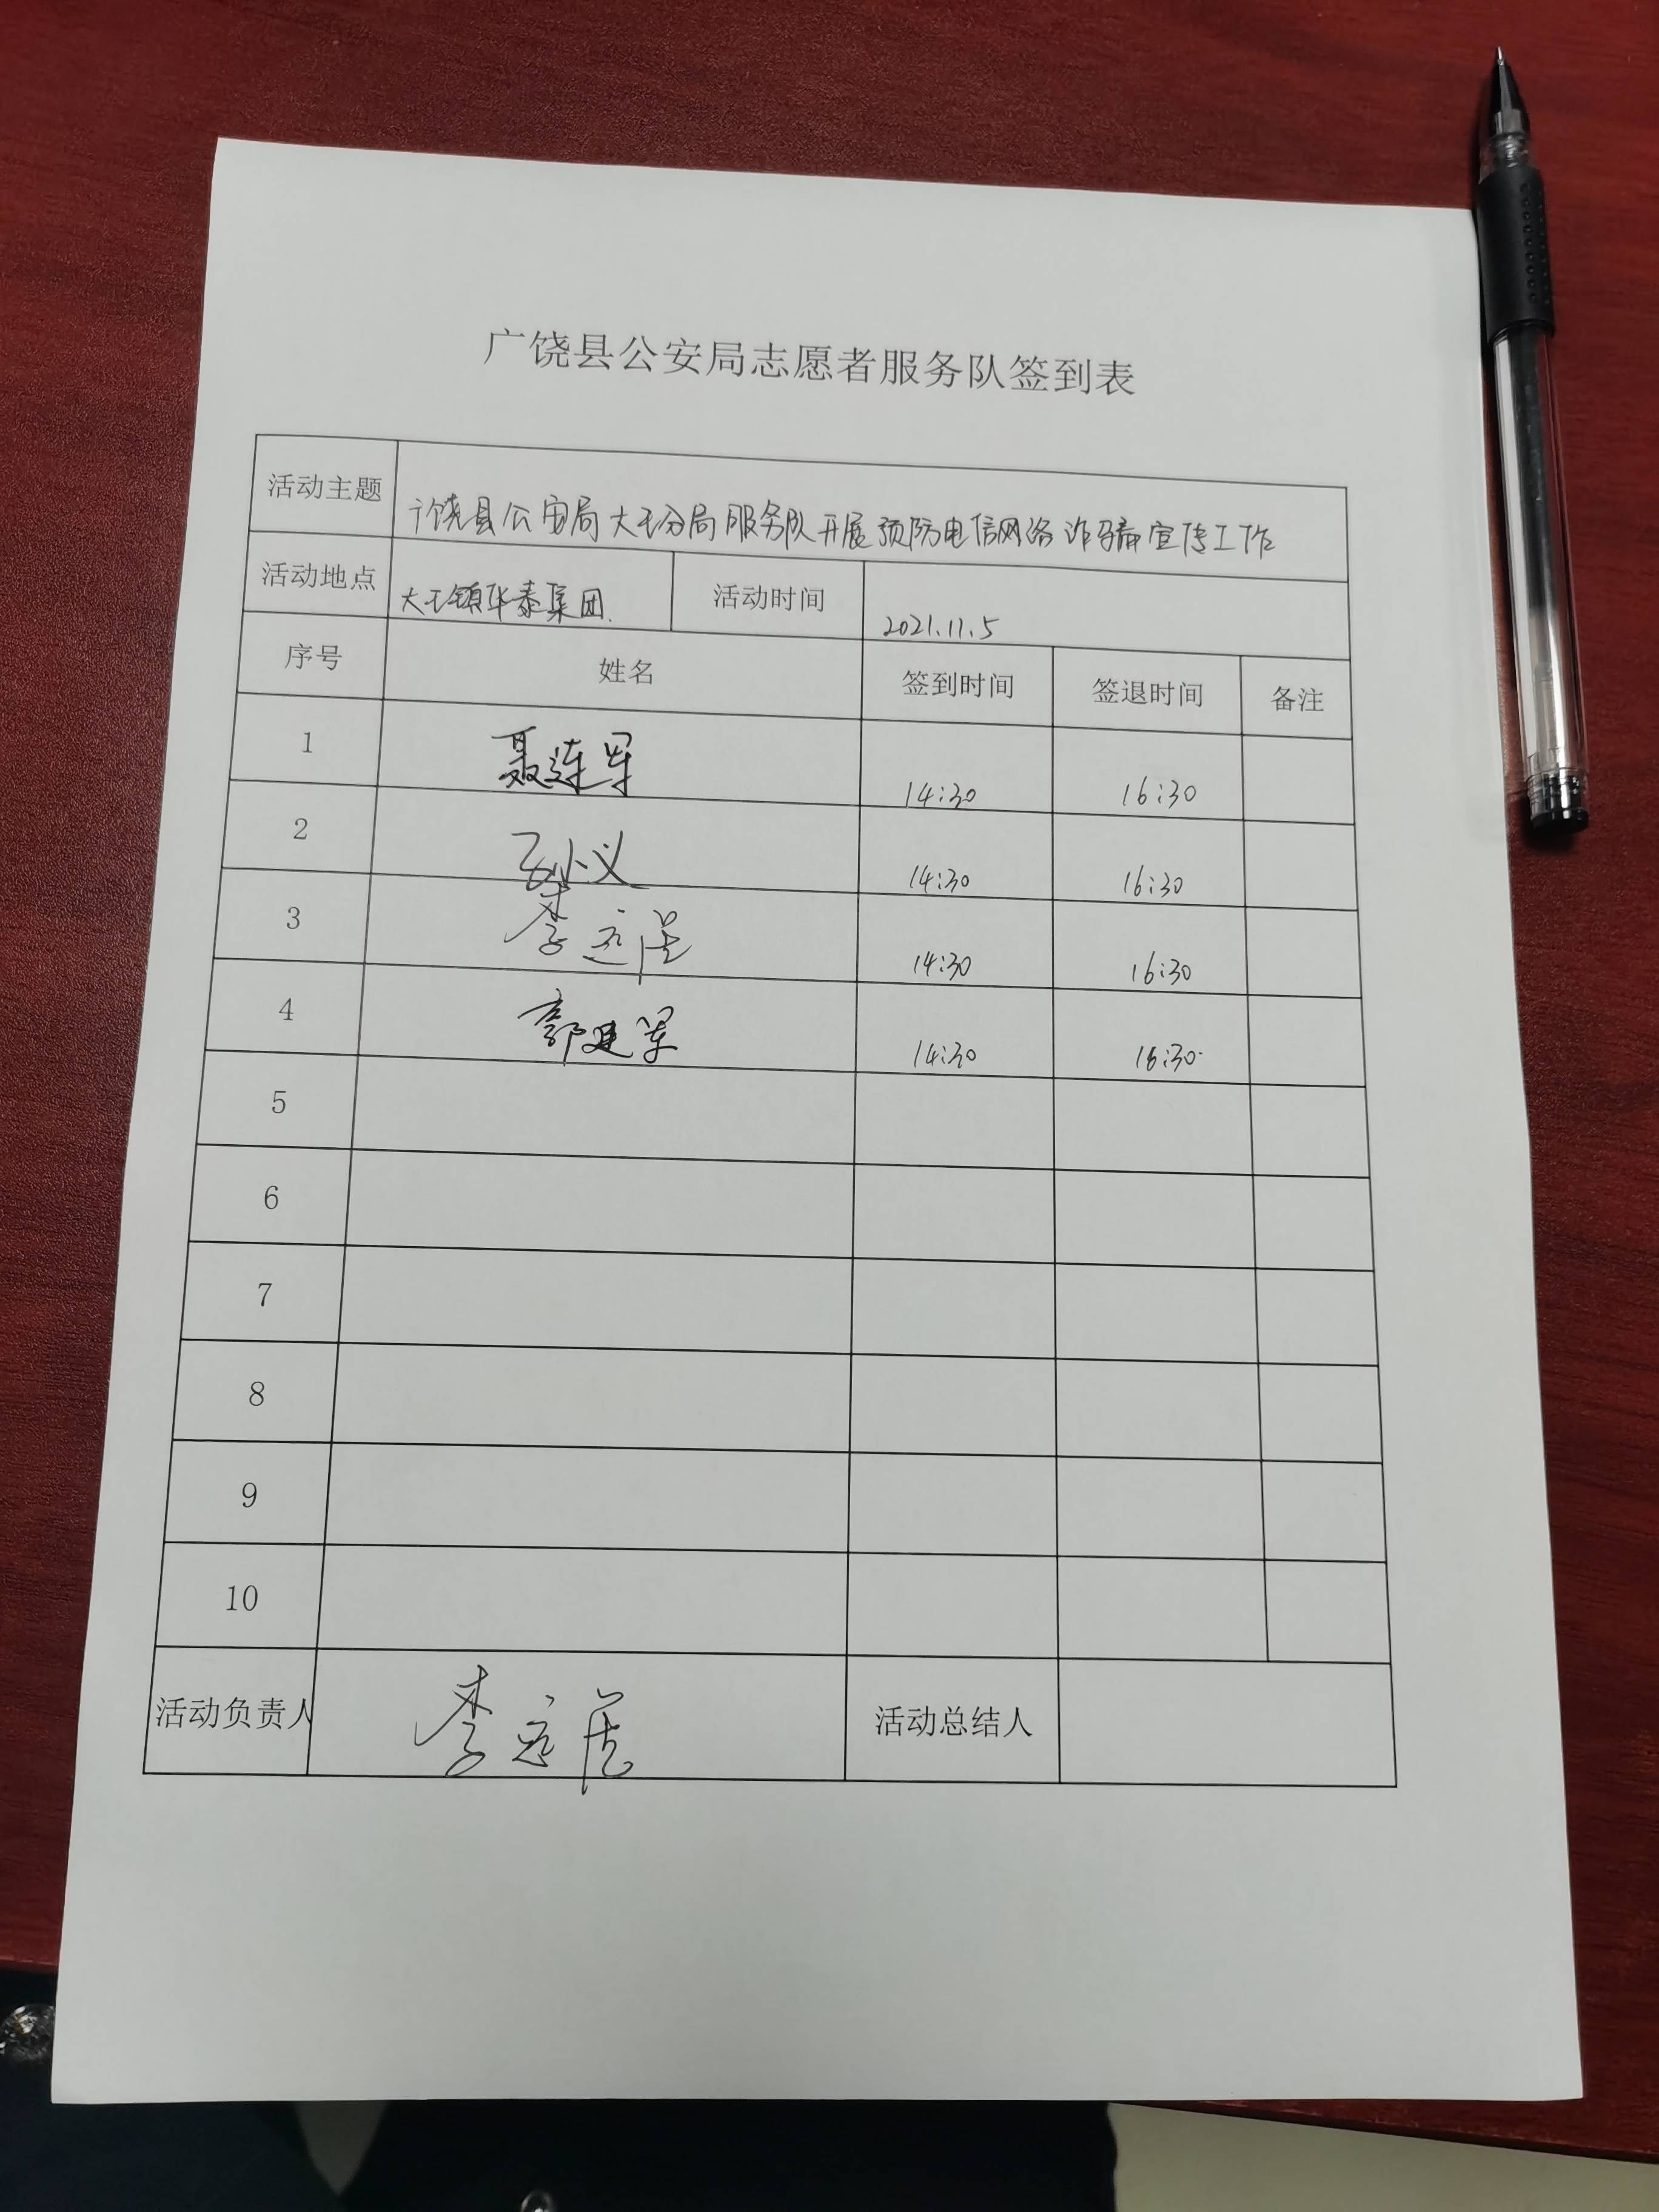 广饶县公安局志愿者服务队签到表
活动主题 广饶县公安局大王分局服务队开展预防电信网络诈骗宣传工作
活动地点 大王镇华泰集团. 活动时间 2021.11.5
序号 姓名 签到时间 签退时间 备注
1 聂连军 14:30 16:30
2 小义 14:30 16:30
3 李远 14:30 16:30
4 郭建军 14:30 16:30
5
6
7
8
9
10
活动负责人 李远 活动总结人